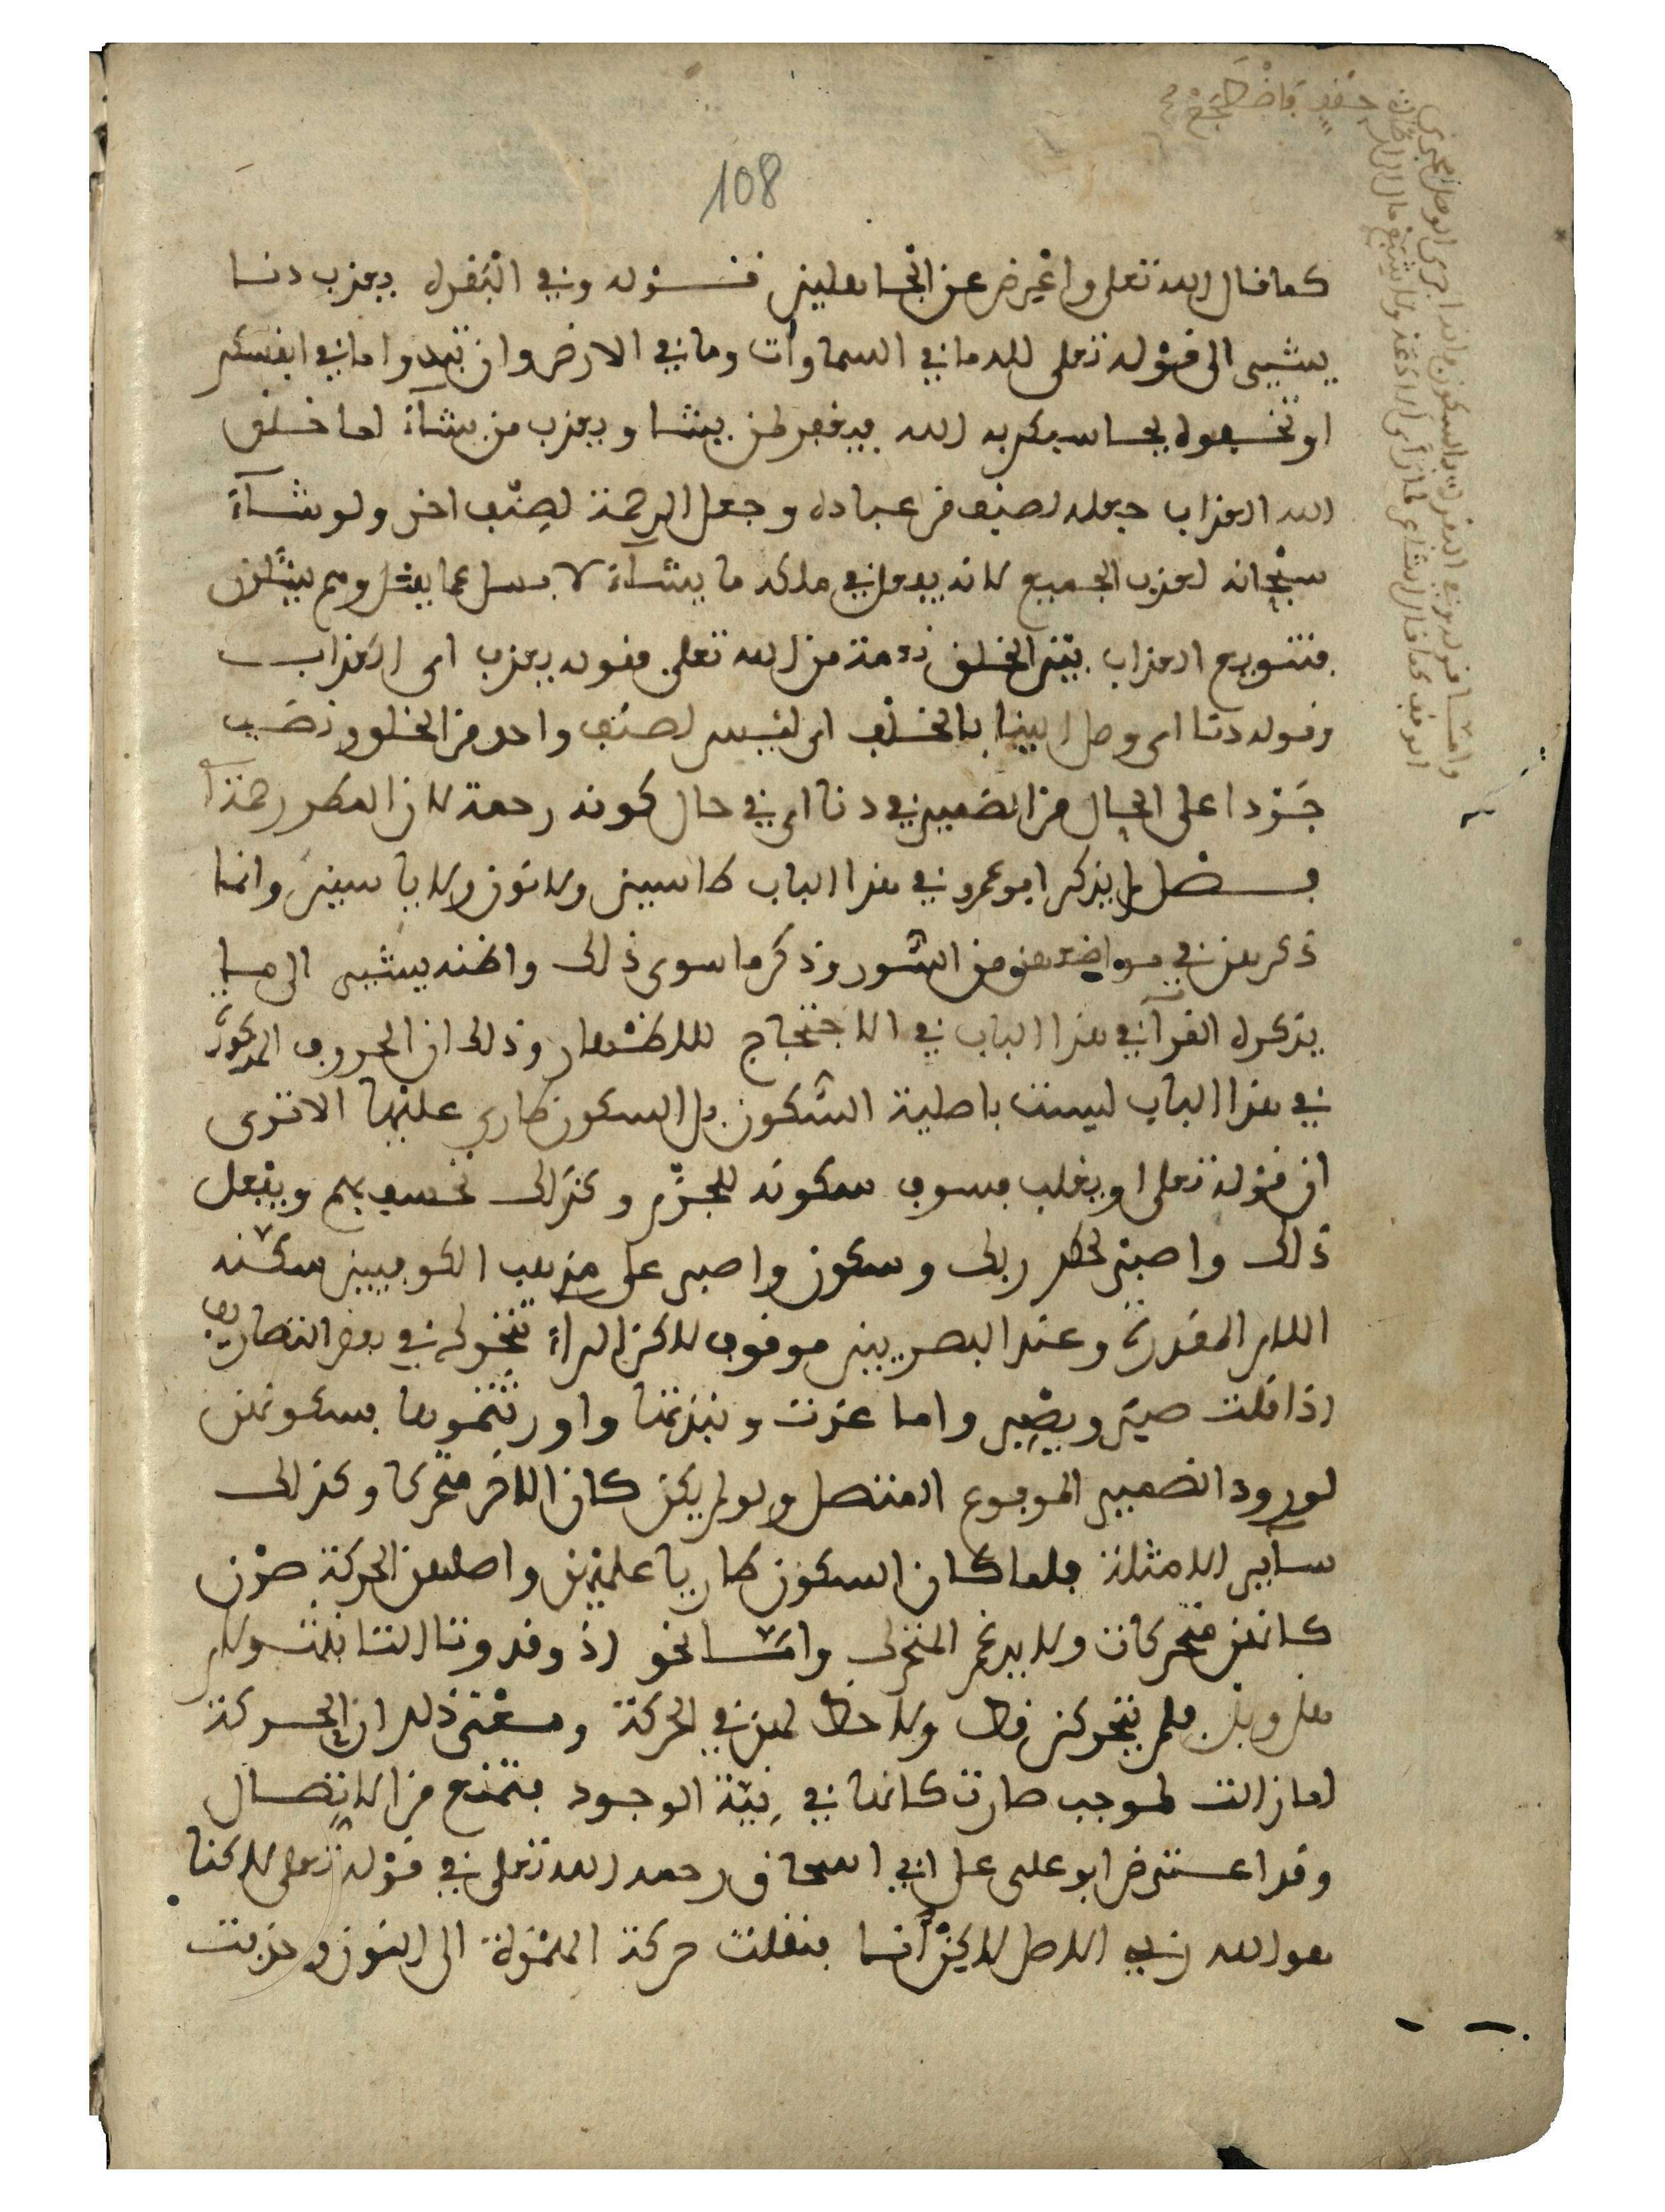 108
كما قال الله تعلى واعرض عن الجاهلين قوله وفي البقره يعذب دنا
يشير الى قوله تعلى لله ما في السماوات وما في الارض وان تبدوا ما في انفسكم
او تخفوه يحاسبكم به الله فيغفر لمن يشا ويعذب من يشآء لما خلق
الله العذاب جعله لصنف من عباده وجعل الرحمة لصنف اخر ولو شآء
سبحانه لعذب الجميع لانه يفعل في ملكه ما يشآء لا يسل عما يفعل وهم يسلون
فتنويع العذاب بين الخلق من الله تعلى فقوله يعذب اى العذاب
وقوله دنا اى وصل الينا بالخلف اى ليس لصنف واحد من الخلق ونصب
جودا على الحال من الضمير في دنا اى في حال كونه رحمة لان المطر رحمة
فصل لم يذكر ابو عمرو في هذا الباب كا سين ولا نون ولا يا سين وانما
ذكرهن في مواضعهن من السور وذكر ما سوى ذلك واظنه يشير الى ما
يذكره القرآ في هذا الباب في الاحتجاج للاظهار وذلك ان الحروف المذكورة
في هذا الباب ليست باصلية السكون بل السكون طاري عليها الا ترى
ان قوله تعلى او يغلب فسوف سكونه للجزم وكذلك نخسف بهم ويفعل
ذلك واصبر لحكم ربك وسكون واصبر على مذهب الكوفيين سكنه
اللام المقدرة وعند البصريين موقوف لاكن الراء تتحرك في بعض التصاريف
اذا قلت صبر ويصبر واما عذت ونبذتها واورثتموها فسكونهن
لورود الضمير المرفوع المتصل ولو لم يكن كان اللاخر متحركا وكذلك
ساير اللامثلة فلما كان السكون طاريا عليهن واصلهن الحركة صرن
كانهن متحركات ولا يدغم المتحرك واما نحو اذ وقد وتا التانيث ولام
هل وبل فلم يتحركن قط ولا حظ لهن في الحركة ومعنى ذلك ان الحركة
لما زالت لموجب صارت كانها في نية الوجود فتمنع من الاتصال
وقد اعترض ابو على على ابي اسحاق رحمه الله تعلى في قوله تعلى لاكنا
هو الله ربي اللاصل لاكن انا فنقلت حركة الهمزة الى النون وحذفت